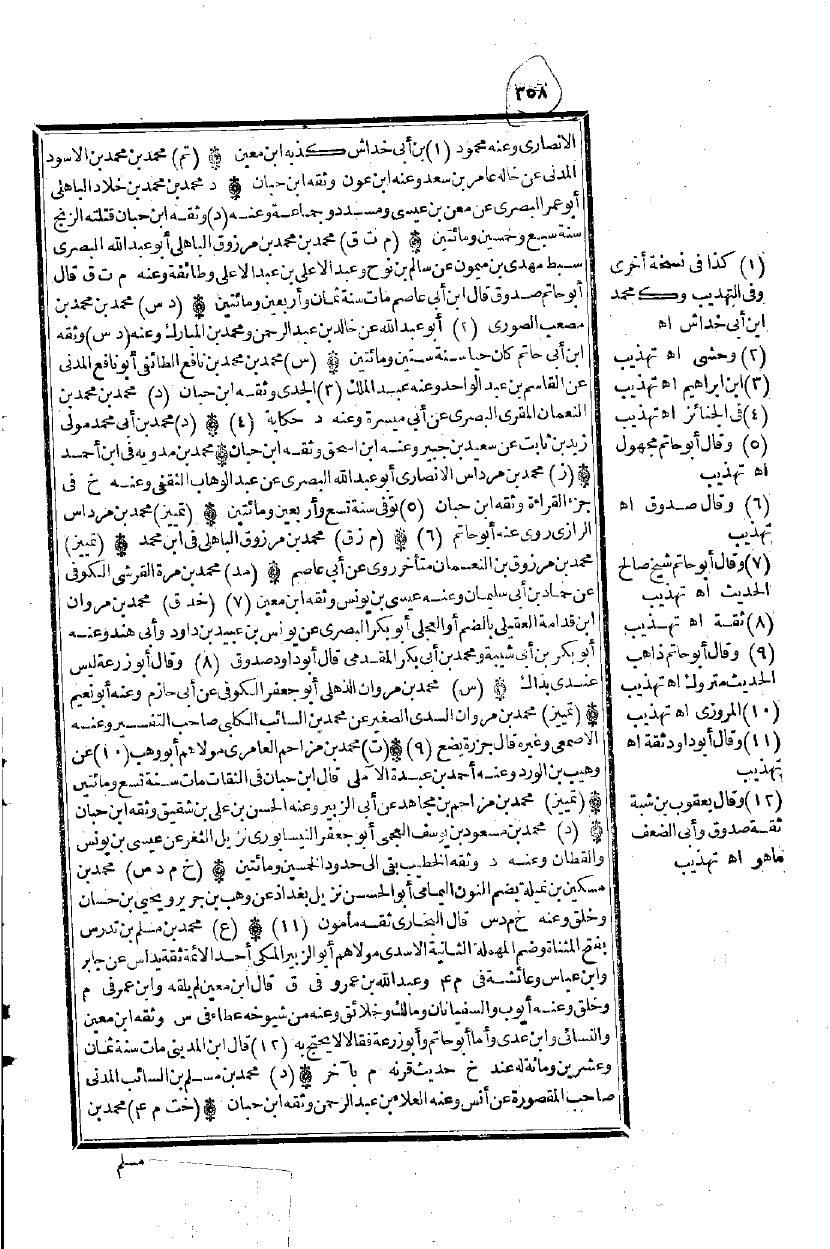 ٣٥٨
الانصارى وعنه محمود (١) بن أبى خداش كذبه ابن معين (تم) محمد بن محمد بن الاسود
المدنى عن خاله عامر بن سعد وعنه ابن عون وثقه ابن حبان د محمد بن محمد بن خلاد الباهلى
أبو عمر البصرى عن معن بن عيسى ومسدد وجماعة وعنه (د) وثقه ابن حبان قتلته الزنج
سنة سبع وخمسين ومائتين (م ت ق) محمد بن محمد بن مرزوق الباهلى أبو عبد الله البصرى
سبط مهدى بن ميمون عن سالم بن نوح وعبد الاعلى بن عبد الاعلى وطائفة وعنه م ت ق قال
أبو حاتم صدوق قال ابن أبى عاصم مات سنة ثمان وأربعين ومائتين (د س) محمد بن محمد بن
مصعب الصورى (٢) أبو عبد الله عن خالد بن عبد الرحمن ومحمد بن المبارك وعنه (د س) وثقه
ابن أبى حاتم كان حيا سنة ستين ومائتين (س) محمد بن محمد بن نافع الطائفى أبو نافع المدنى
عن القاسم بن عبد الواحد وعنه عبد الملك (٣) الجدى وثقه ابن حبان (د) محمد بن محمد بن
النعمان المقرى البصرى عن أبى ميسرة وعنه د حكاية (٤) (د) محمد بن أبى محمد مولى
زيد بن ثابت عن سعيد بن جبير وعنه ابن اسحق وثقه ابن حبان محمد بن مدويه فى ابن أحمد
(ز) محمد بن مرداس الانصارى أبو عبد الله البصرى عن عبد الوهاب الثقفى وعنه خ فى
جزء القراءة وثقه ابن حبان (٥) توفى سنة تسع وأربعين ومائتين (تمييز) محمد بن مرداس
الرازى روى عنه أبو حاتم (٦) (م ز ق) محمد بن مرزوق الباهلى فى ابن محمد (تمييز)
محمد بن مرزوق بن النعمان متأخر روى عن أبى عاصم (مد) محمد بن مرة القرشى الكوفى
عن حماد بن أبى سليمان وعنه عيسى بن يونس وثقه ابن معين (٧) (خد ق) محمد بن مروان
ابن قدامة العقيلى بالضم أو العجلى أبو بكر البصرى عن يونس بن عبيد بن داود وأبى هند وعنه
أبو بكر بن أبى شيبة ومحمد بن أبى بكر المقدمى قال أبو داود صدوق (٨) وقال أبو زرعة ليس
عندى بذاك (س) محمد بن مروان الذهلى أبو جعفر الكوفى عن أبى حازم وعنه أبو نعيم
(تمييز) محمد بن مروان السدى الصغير عن محمد بن السائب الكلبى صاحب التفسير وعنه
الاصمعى وغيره قال جزرة يضع (٩) (ت) محمد بن مزاحم العامرى مولاهم أبو وهب (١٠) عن
وهيب بن الورد وعنه أحمد بن عبدة الآملى قال ابن حبان فى الثقات مات سنة تسع ومائتين
(تمييز) محمد بن مزاحم بن مجاهد عن أبى الزبير وعنه الحسن بن على بن شقيق وثقه ابن حبان
(د) محمد بن مسعود بن يوسف العجمى أبو جعفر النيسابورى نزيل الثغر عن عيسى بن يونس
والقطان وعنه د وثقه الخطيب بقى الى حدود الخمسين ومائتين (خ م د س) محمد بن
مسكين بن نميلة بضم النون اليمامى أبو الحسن نزيل بغداد عن وهب بن جرير ويحيى بن حسان
وخلق وعنه خ م د س قال البخارى ثقه مأمون (١١) (ع) محمد بن مسلم بن تدرس
بفتح المثناة وضم المهملة الثانية الاسدى مولاهم أبو الزبير المكى أحد الائمة ثقة يدلس عن جابر
وابن عباس وعائشة فى م ٤ وعبد الله بن عمرو فى ق قال ابن معين لم يلقه وابن عمر فى م
وخلق وعنه أيوب والسفيانان ومالك وخلائق وعنه من شيوخه عطاء فى س وثقه ابن معين
والنسائى وابن عدى وأما أبو حاتم وأبو زرعة فقالا لا يحتج به (١٢) قال ابن المدينى مات سنة ثمان
وعشرين ومائة له عند خ حديث قرنه م بآخر (د) محمد بن مسلم بن السائب المدنى
صاحب المقصورة عن أنس وعنه العلاء بن عبد الرحمن وثقه ابن حبان (خت م ٤) محمد بن
مسلم
(١) كذا فى نسخة أخرى
وفى التهذيب وك محمد
ابن أبى خداش اه
(٢) وحشى اه تهذيب
(٣) ابن ابراهيم اه تهذيب
(٤) فى الجنائز اه تهذيب
(٥) وقال أبو حاتم مجهول
اه تهذيب
(٦) وقال صدوق اه
تهذيب
(٧) وقال أبو حاتم شيخ صالح
الحديث اه تهذيب
(٨) ثقة اه تهذيب
(٩) وقال أبو حاتم ذاهب
الحديث متروك اه تهذيب
(١٠) المروزى اه تهذيب
(١١) وقال أبو داود ثقة اه
تهذيب
(١٢) وقال يعقوب بن شيبة
ثقة صدوق وأبى الضعف
ماهو اه تهذيب